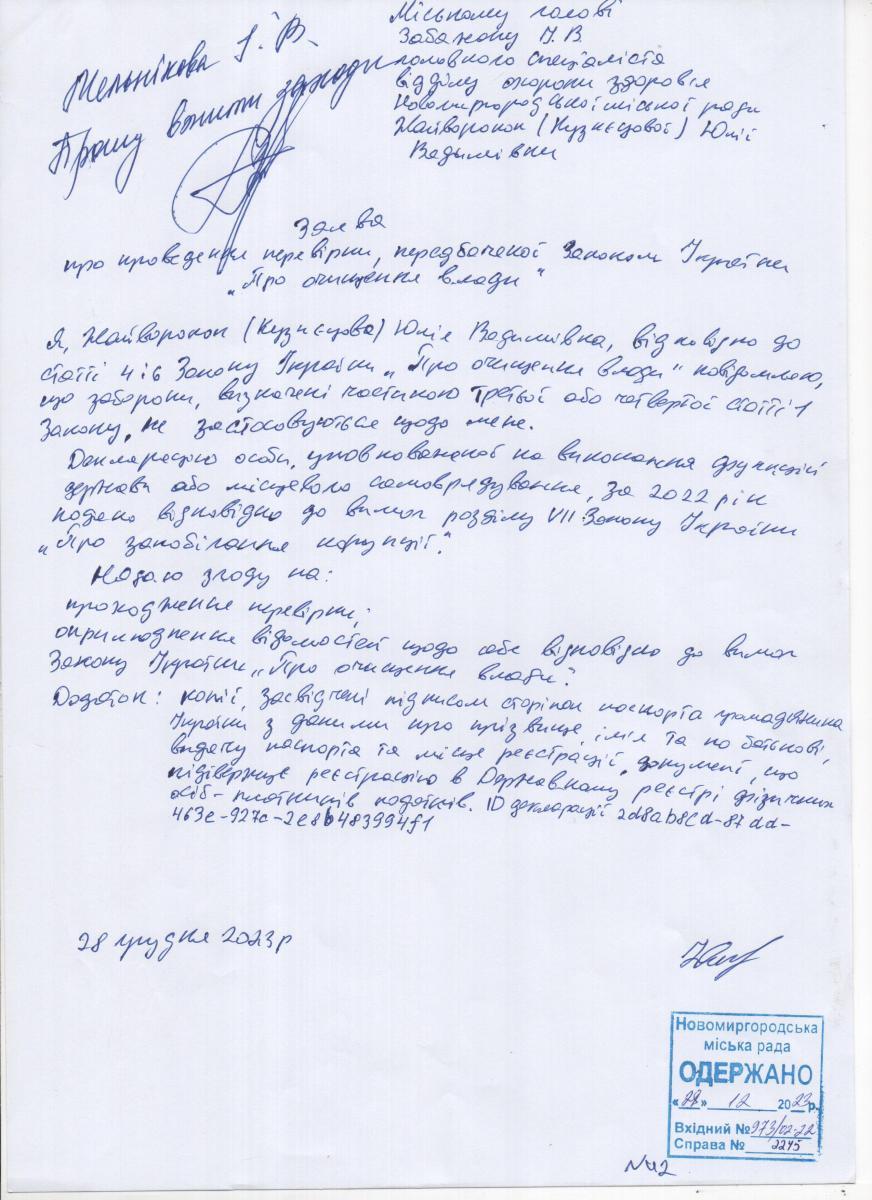 Мельнікова І. В.
Прошу вжити заходи
Міському голові
Забажану І. В.
головного спеціаліста
відділу охорони здоровія
Новомиргородської міської ради
Жайворонок (Кузнєцової) Юлії
Вадимівни
Заява
про проведення перевірки, передбаченої Законом України
„Про очищення влади"
Я, Жайворонок (Кузнєцова) Юлія Вадимівна, відповідно до
статті 4 і 6 Закону України „Про очищення влади" повідомляю,
що заборони, визначені частиною третьої або четвертої статті 1
Закону, не застосовуються щодо мене.
Декларацію особи, уповноваженої на виконання функцій
держави або місцевого самоврядування, за 2022 рік
подано відповідно до вимог розділу VII Закону України
„Про запобігання корупції".
Надаю згоду на:
проходження перевірки;
оприлюднення відомостей щодо себе відповідно до вимог
Закону України „Про очищення влади".
Додаток: копії, засвідчені підписом сторінок паспорта громадянина
України з даними про прізвище, ім'я та по батькові,
видачу паспорта та місце реєстрації, документі, що
підтверджує реєстрацію в Державному реєстрі фізичних
осіб-платників податків. ID декларації 2d8ab8cd-87dd-
463e-927c-2e8b483994f1
28 грудня 2023р
Новомиргородська
міська рада
ОДЕРЖАНО
«28» 12 2023 р.
Вхідний № 973/02-22
Справа № 2245
№42